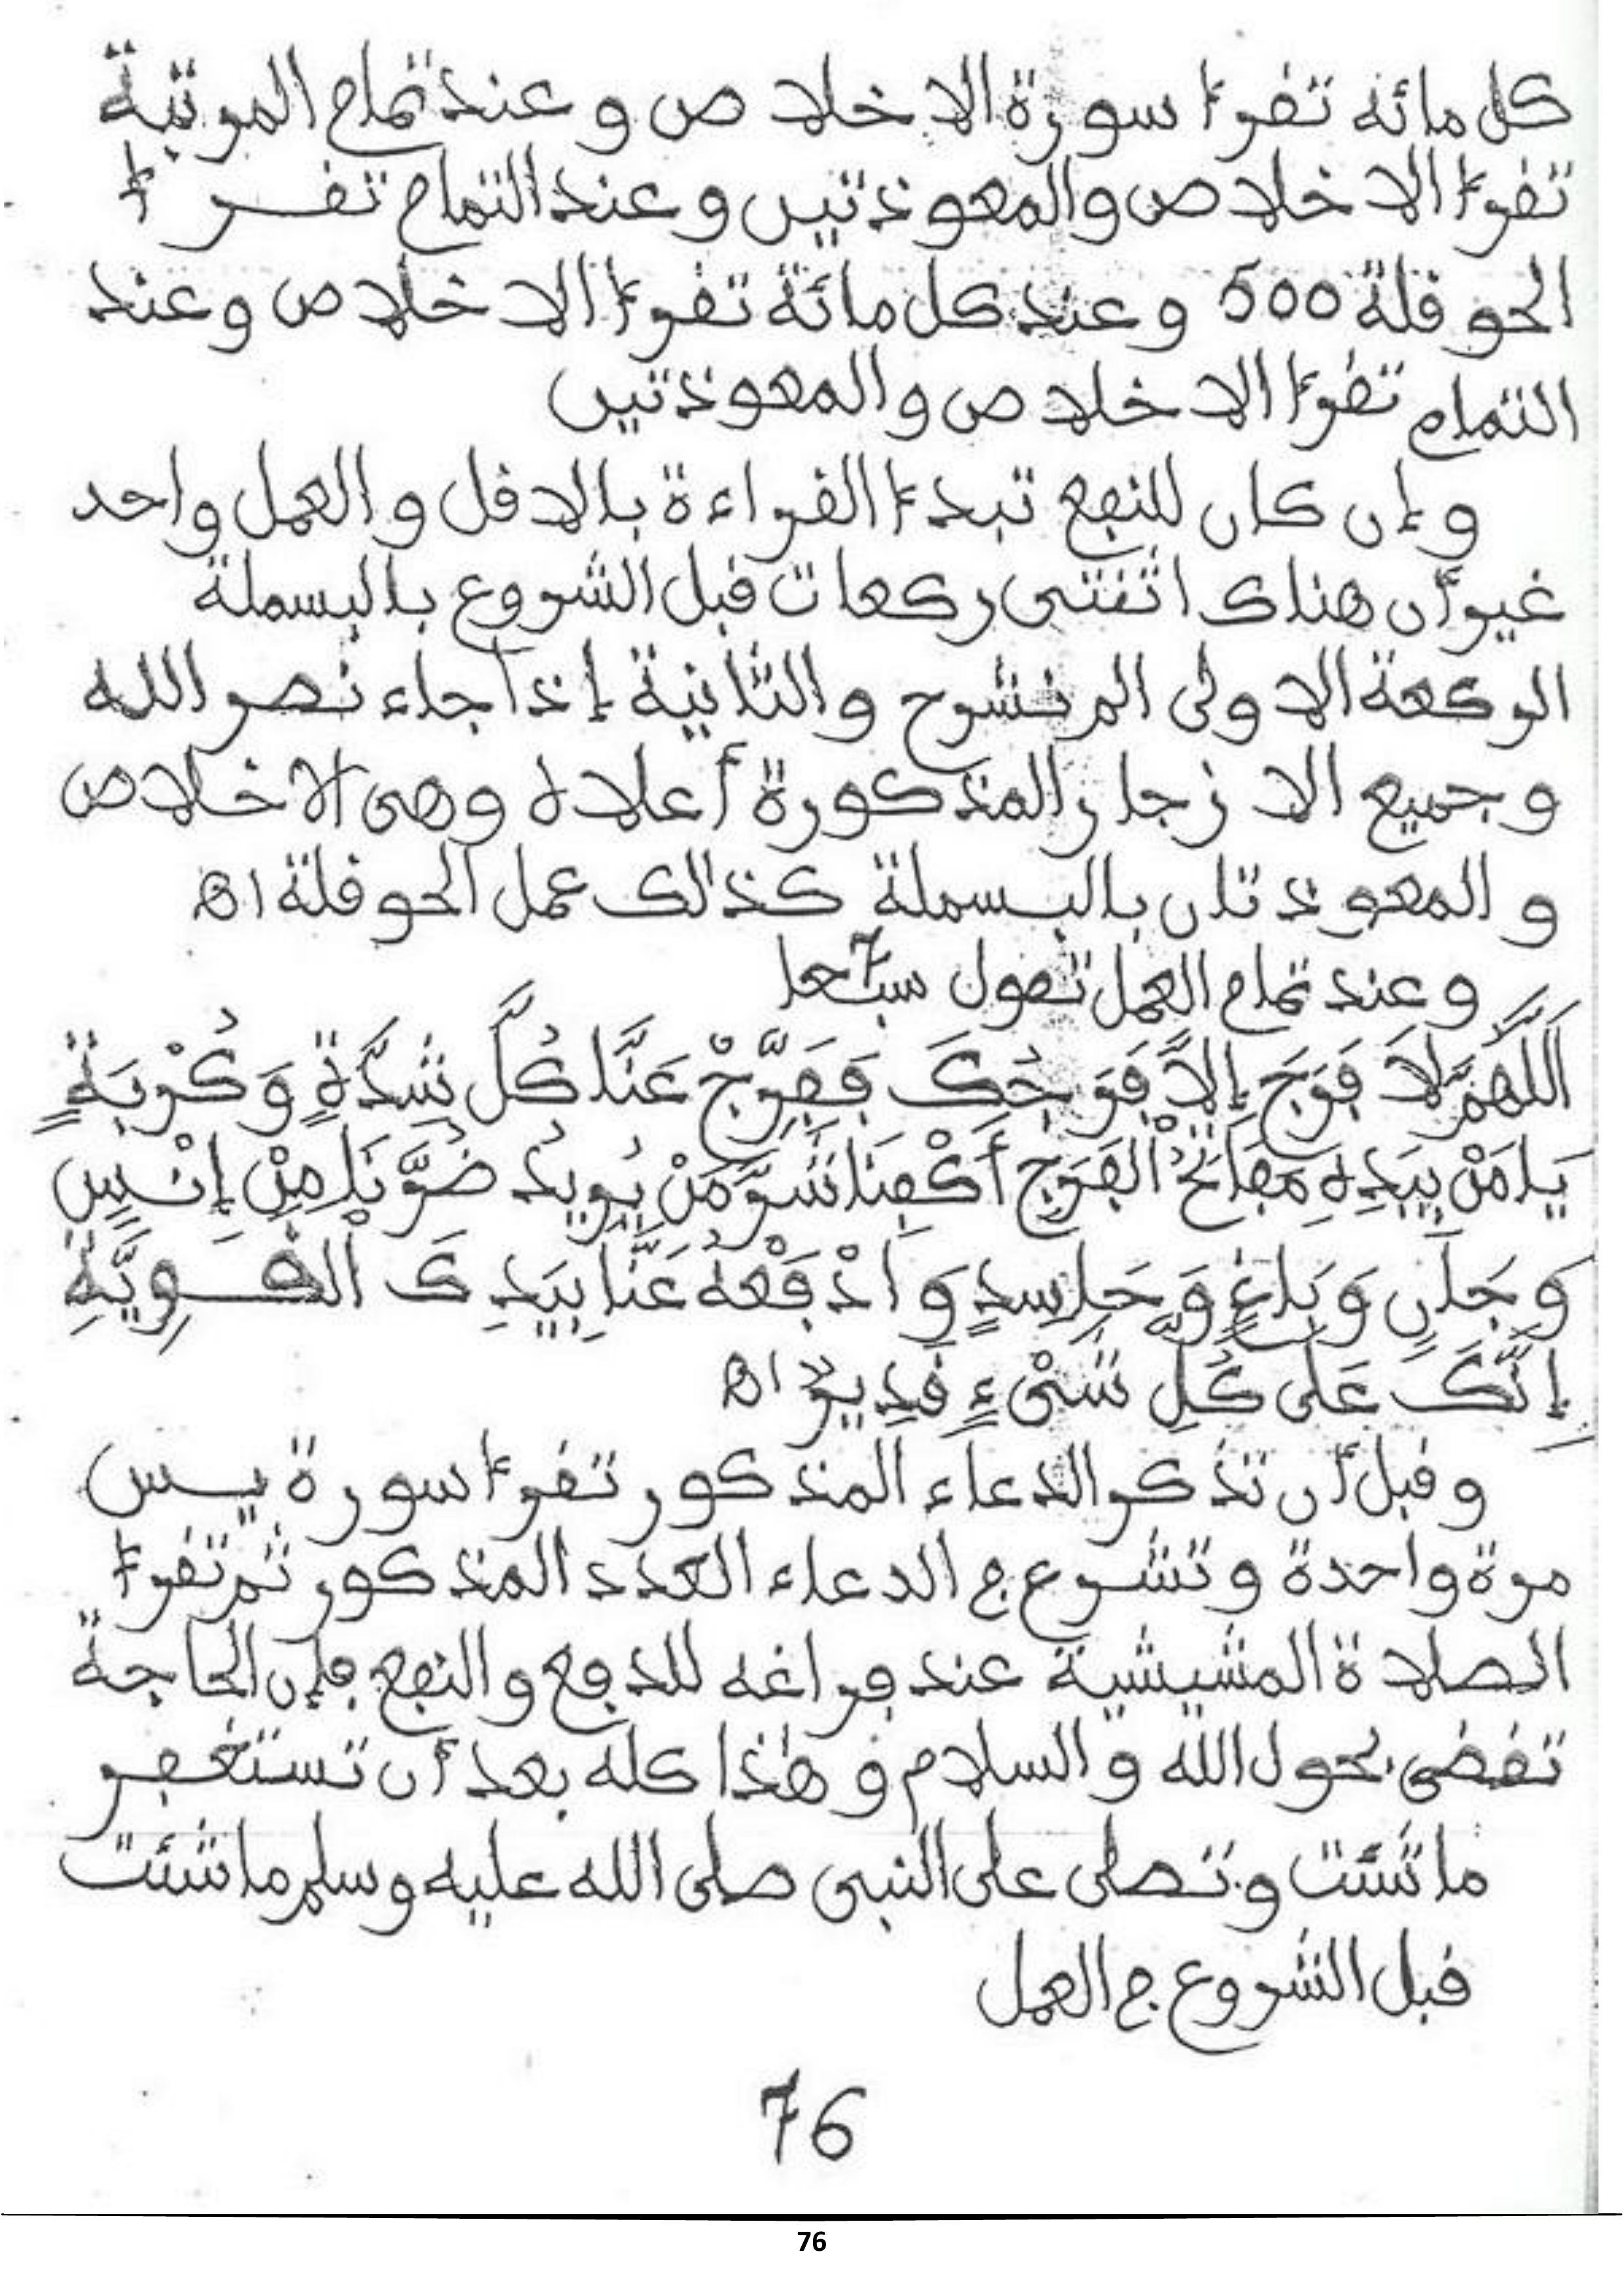 كل مائه تقرءا سورة الاخلاص وعند تمام المرتبة
تقرءا الاخلاص والمعوذتين وعند التمام تقرءا
الحوقلة 500 وعند كل مائة تقرءا الاخلاص وعند
التمام تقرءا الاخلاص والمعوذتين
وإن كان للنفع تبدءا القراءة بالاقل والعمل واحد
غير أن هناك اثنتى ركعات قبل الشروع بالبسملة
الركعة الاولى الم نشرح والثانية إذا جاء نصر الله
وجميع الازجار المذكورة أعلاه وهى الاخلاص
والمعوذتان بالبسملة كذالك عمل الحوقلة اه
وعند تمام العمل تقول سبعا 7
اَللَّهُمَّ لَا فَرَجَ إِلَّا فَرَجُكَ فَفَرِّجْ عَنَّا كُلَّ شِدَّةٍ وَكُرْبَةٍ
يَا مَنْ بِيَدِهِ مَفَاتِحُ الْفَرَجِ أَكْفِنَا شَرَّ مَنْ يُرِيدُ ضُرَّنَا مِنْ إِنْسٍ
وَجَانٍ وَبَاغٍ وَحَاسِدٍ وَادْفَعْهُ عَنَّا بِيَدِكَ الْقَوِيَّةِ
إِنَّكَ عَلَى كُلِّ شَىْءٍ قَدِيرٌ اه
وقبل أن تذكر الدعاء المذكور تقرءا سورة يس
مرة واحدة وتشرع في الدعاء العدد المذكور ثم تقرءا
الصلاة المشيشية عند فراغه للدفع والنفع فإن الحاجة
تقضى بحول الله والسلام وهذا كله بعد أن تستغفر
ما شئت وتصلى على النبى صلى الله عليه وسلم ما شئت
قبل الشروع في العمل
76
76